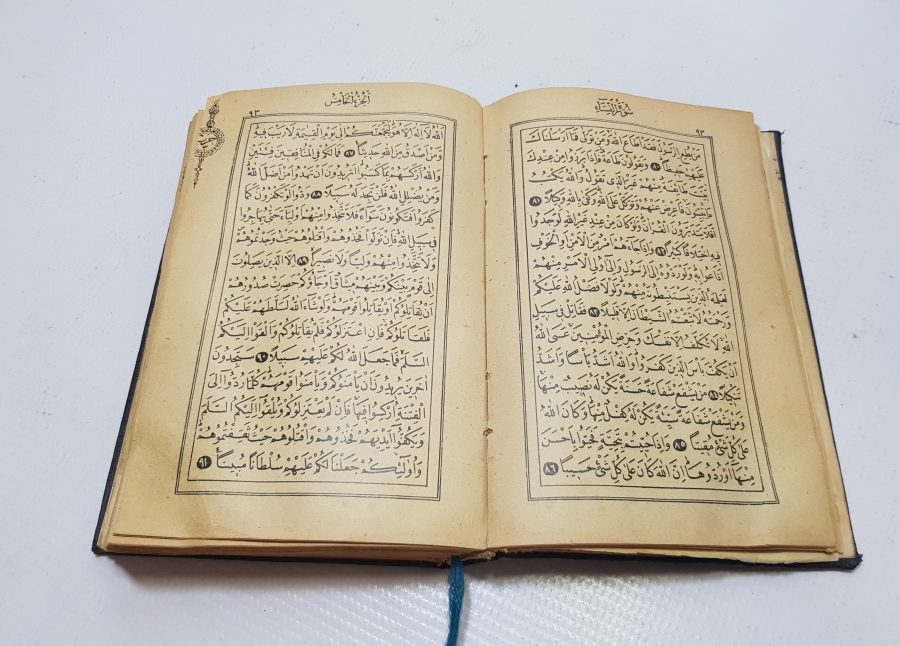 سُورَةُ النِّسَاءِ
٩٢
مَنْ يُطِعِ الرَّسُولَ فَقَدْ اَطَاعَ اللهَ وَمَنْ تَوَلّٰى فَمَا اَرْسَلْنَاكَ
عَلَيْهِمْ حَفِيظًا ٨٠ وَيَقُولُونَ طَاعَةٌ فَاِذَا بَرَزُوا مِنْ عِنْدِكَ
بَيَّتَ طَائِفَةٌ مِنْهُمْ غَيْرَ الَّذِى تَقُولُ وَاللهُ يَكْتُبُ
مَا يُبَيِّتُونَ فَاَعْرِضْ عَنْهُمْ وَتَوَكَّلْ عَلَى اللهِ وَكَفٰى بِاللهِ وَكِيلًا ٨١
اَفَلَا يَتَدَبَّرُونَ الْقُرْاٰنَ وَلَوْ كَانَ مِنْ عِنْدِ غَيْرِ اللهِ لَوَجَدُوا
فِيهِ اخْتِلَافًا كَثِيرًا ٨٢ وَاِذَا جَاءَهُمْ اَمْرٌ مِنَ الْاَمْنِ اَوِ الْخَوْفِ
اَذَاعُوا بِهِ وَلَوْ رَدُّوهُ اِلَى الرَّسُولِ وَاِلٰى اُولِى الْاَمْرِ مِنْهُمْ
لَعَلِمَهُ الَّذِينَ يَسْتَنْبِطُونَهُ مِنْهُمْ وَلَوْلَا فَضْلُ اللهِ عَلَيْكُمْ
وَرَحْمَتُهُ لَاتَّبَعْتُمُ الشَّيْطَانَ اِلَّا قَلِيلًا ٨٣ فَقَاتِلْ فِى سَبِيلِ
اللهِ لَا تُكَلَّفُ اِلَّا نَفْسَكَ وَحَرِّضِ الْمُؤْمِنِينَ عَسَى اللهُ
اَنْ يَكُفَّ بَأْسَ الَّذِينَ كَفَرُوا وَاللهُ اَشَدُّ بَأْسًا وَاَشَدُّ
تَنْكِيلًا ٨٤ مَنْ يَشْفَعْ شَفَاعَةً حَسَنَةً يَكُنْ لَهُ نَصِيبٌ مِنْهَا
وَمَنْ يَشْفَعْ شَفَاعَةً سَيِّئَةً يَكُنْ لَهُ كِفْلٌ مِنْهَا وَكَانَ اللهُ
عَلٰى كُلِّ شَىْءٍ مُقِيتًا ٨٥ وَاِذَا حُيِّيتُمْ بِتَحِيَّةٍ فَحَيُّوا بِاَحْسَنَ
مِنْهَا اَوْ رُدُّوهَا اِنَّ اللهَ كَانَ عَلٰى كُلِّ شَىْءٍ حَسِيبًا ٨٦
اَلْجُزْءُ الْخَامِسُ
٩٣
اَللهُ لَا اِلٰهَ اِلَّا هُوَ لَيَجْمَعَنَّكُمْ اِلٰى يَوْمِ الْقِيٰمَةِ لَا رَيْبَ فِيهِ
وَمَنْ اَصْدَقُ مِنَ اللهِ حَدِيثًا ٨٧ فَمَا لَكُمْ فِى الْمُنَافِقِينَ فِئَتَيْنِ
وَاللهُ اَرْكَسَهُمْ بِمَا كَسَبُوا اَتُرِيدُونَ اَنْ تَهْدُوا مَنْ اَضَلَّ اللهُ
وَمَنْ يُضْلِلِ اللهُ فَلَنْ تَجِدَ لَهُ سَبِيلًا ٨٨ وَدُّوا لَوْ تَكْفُرُونَ كَمَا
كَفَرُوا فَتَكُونُونَ سَوَاءً فَلَا تَتَّخِذُوا مِنْهُمْ اَوْلِيَاءَ حَتّٰى يُهَاجِرُوا
فِى سَبِيلِ اللهِ فَاِنْ تَوَلَّوْا فَخُذُوهُمْ وَاقْتُلُوهُمْ حَيْثُ وَجَدْتُمُوهُمْ
وَلَا تَتَّخِذُوا مِنْهُمْ وَلِيًّا وَلَا نَصِيرًا ٨٩ اِلَّا الَّذِينَ يَصِلُونَ
اِلٰى قَوْمٍ بَيْنَكُمْ وَبَيْنَهُمْ مِيثَاقٌ اَوْ جَاؤُكُمْ حَصِرَتْ صُدُورُهُمْ
اَنْ يُقَاتِلُوكُمْ اَوْ يُقَاتِلُوا قَوْمَهُمْ وَلَوْ شَاءَ اللهُ لَسَلَّطَهُمْ عَلَيْكُمْ
فَلَقَاتَلُوكُمْ فَاِنِ اعْتَزَلُوكُمْ فَلَمْ يُقَاتِلُوكُمْ وَاَلْقَوْا اِلَيْكُمُ
السَّلَمَ فَمَا جَعَلَ اللهُ لَكُمْ عَلَيْهِمْ سَبِيلًا ٩٠ سَتَجِدُونَ
اٰخَرِينَ يُرِيدُونَ اَنْ يَأْمَنُوكُمْ وَيَأْمَنُوا قَوْمَهُمْ كُلَّمَا رُدُّوا اِلَى
الْفِتْنَةِ اُرْكِسُوا فِيهَا فَاِنْ لَمْ يَعْتَزِلُوكُمْ وَيُلْقُوا اِلَيْكُمُ السَّلَمَ
وَيَكُفُّوا اَيْدِيَهُمْ فَخُذُوهُمْ وَاقْتُلُوهُمْ حَيْثُ ثَقِفْتُمُوهُمْ
وَاُولٰئِكُمْ جَعَلْنَا لَكُمْ عَلَيْهِمْ سُلْطَانًا مُبِينًا ٩١